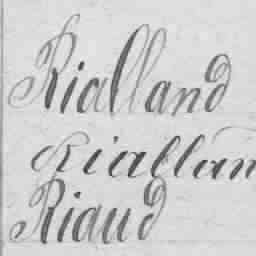 Rialland
Riallan
Riaud